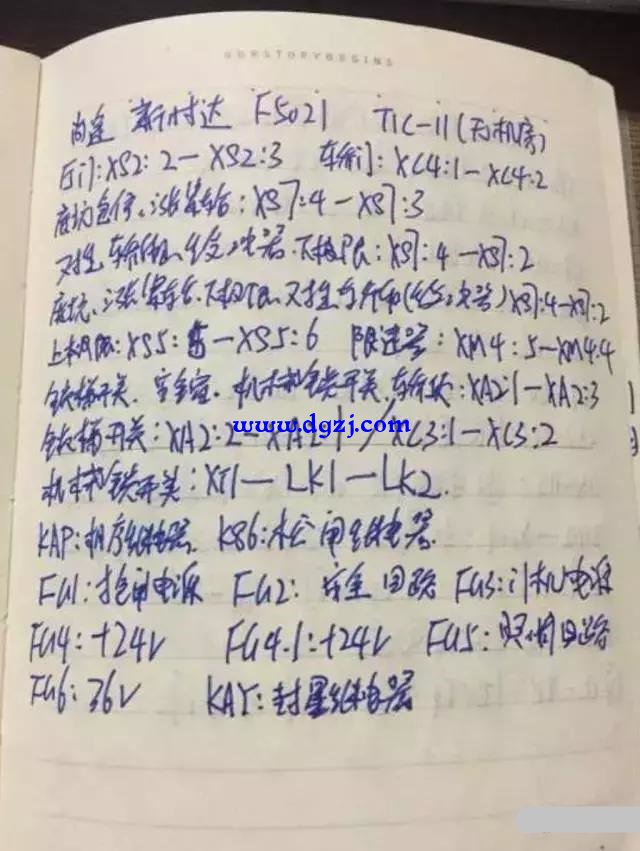 OURSTORYBEGINS
尚途 新时达 F5021 TIC-11(无机房)
厅门:XS2:2-XS2:3 车轿门:XC4:1-XC4:2
底坑急停、涨紧轮:XS7:4-XS7:3
对重、缓冲器、下极限:XS7:4-XS7:2
底坑、涨紧轮、下极限、对重(缓冲器)XS7:4-XS7:2
上极限:XS5:5-XS5:6 限速器:XM4:5-XM4:4
安全窗、轿顶:XA2:1-XA2:3
开关:XA2:2-XA2:1/XC3:1-XC3:2
开关:XT1-LK1-LK2.
KAP:相序继电器 KS6:松闸继电器
FU1:抱闸电源 FU2:安全回路 FU3:门机电源
FU4:+24V FU4.1:+24V FU5:照明回路
FU6:36V KAY:封星继电器
www.dgzj.com